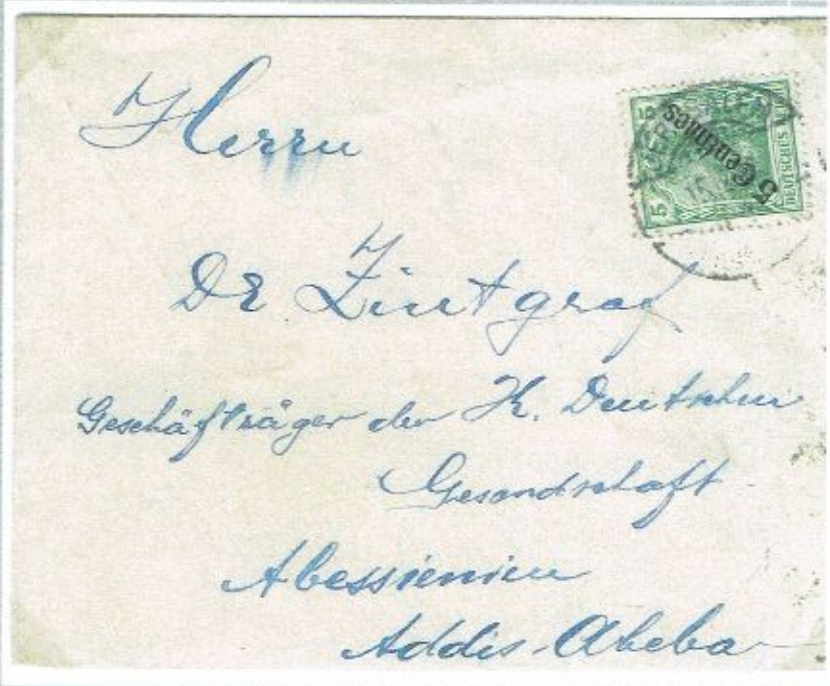 Herrn
Dr Zintgraf
Geschäfträger der K. Deutschen
Gesandschaft
Abessienien
Addis-Abeba
5 5
5 Centimes
DEUTSCHES